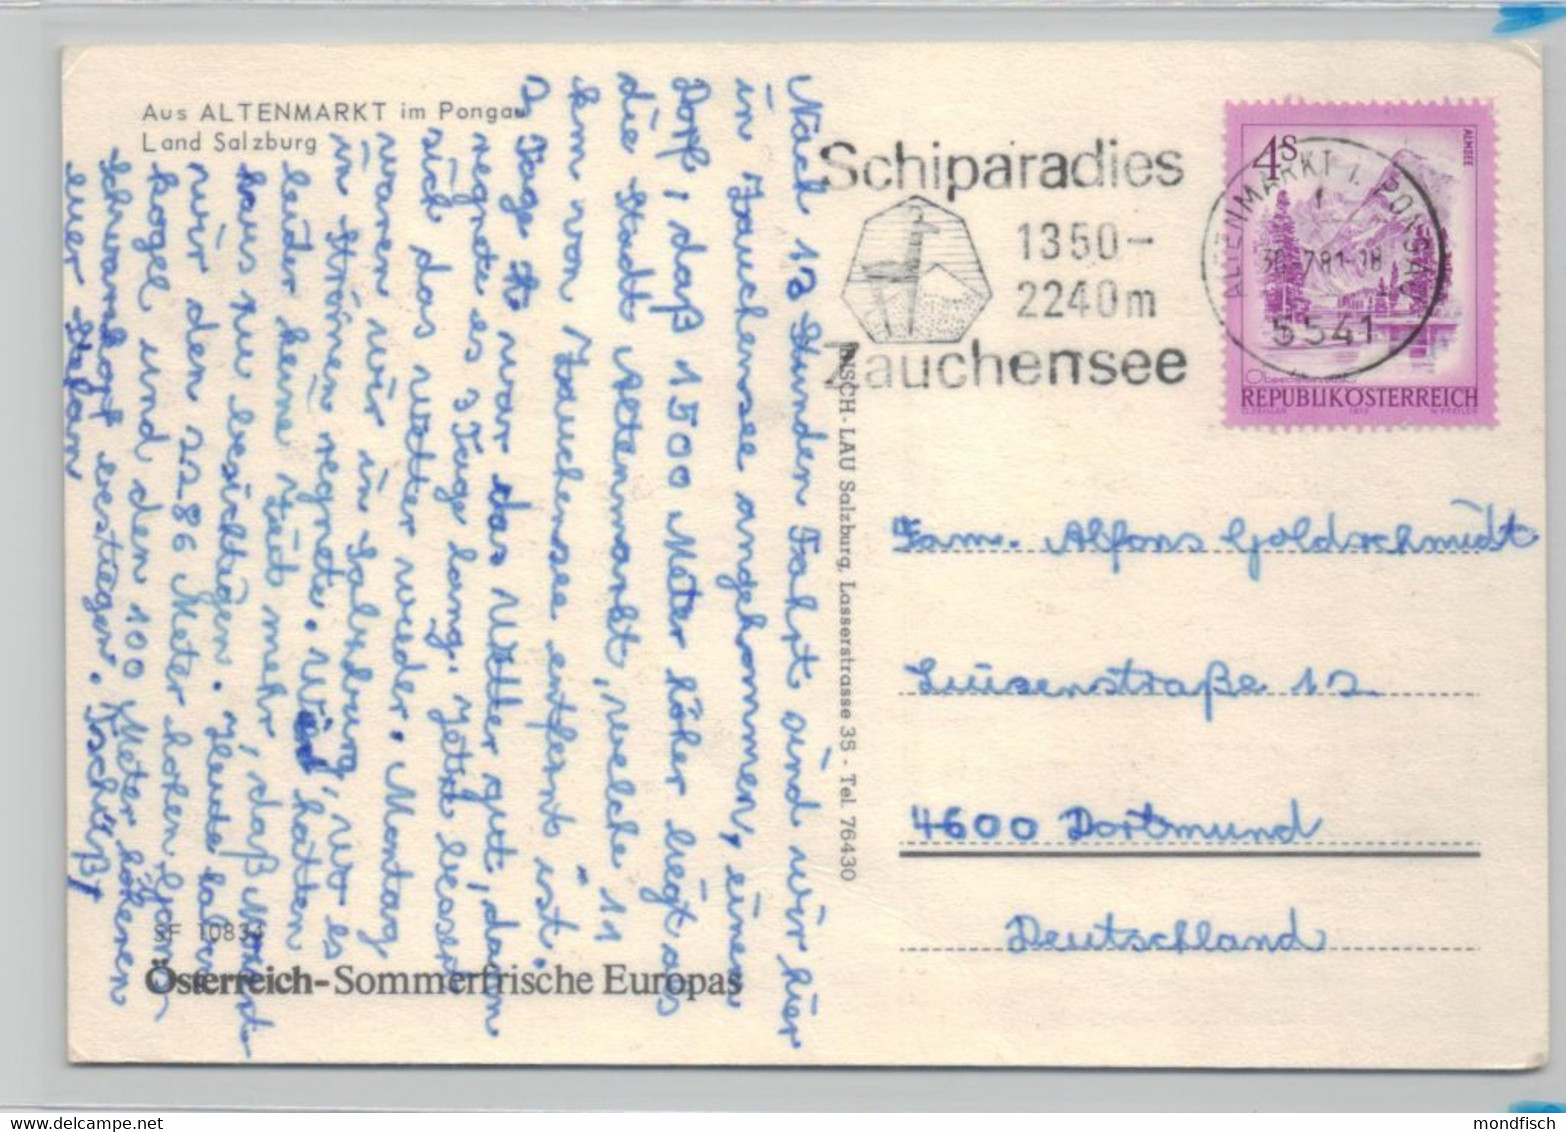 Aus ALTENMARKT im Pongau
Land Salzburg
Nach 13 Stunden Fahrt sind wir hier
in Zauchensee angekommen, einem
Dorf, daß 1500 Meter höher liegt als
die Stadt Altenmarkt, welche 11
km von Zauchensee entfernt ist.
2 Tage war das Wetter gut, dann
regnete es 3 Tage lang. Jetzt bessert
sich das Wetter wieder. Montag
waren wir in Salzburg, wo es
in Strömen regnete. Wir hatten
leider keine Zeit mehr, daß
haus zu besichtigen. Heute
wir den 2286 Meter hohen
kogel und den 100 Meter höheren
Schwarzkopf bestiegen. Tschüß!
euer Stefan
SF 10834
Österreich-Sommerfrische Europas
RISCH-LAU Salzburg, Lasserstrasse 35 - Tel. 76430
Schiparadies
1350-
2240m
Zauchensee
4S
ALMSEE
ALTENMARKT I. PONGAU
30.7.81-18
5541
REPUBLIK ÖSTERREICH
Fam. Alfons Goldschmidt
Luisenstraße 12
4600 Dortmund
Deutschland
mondfisch